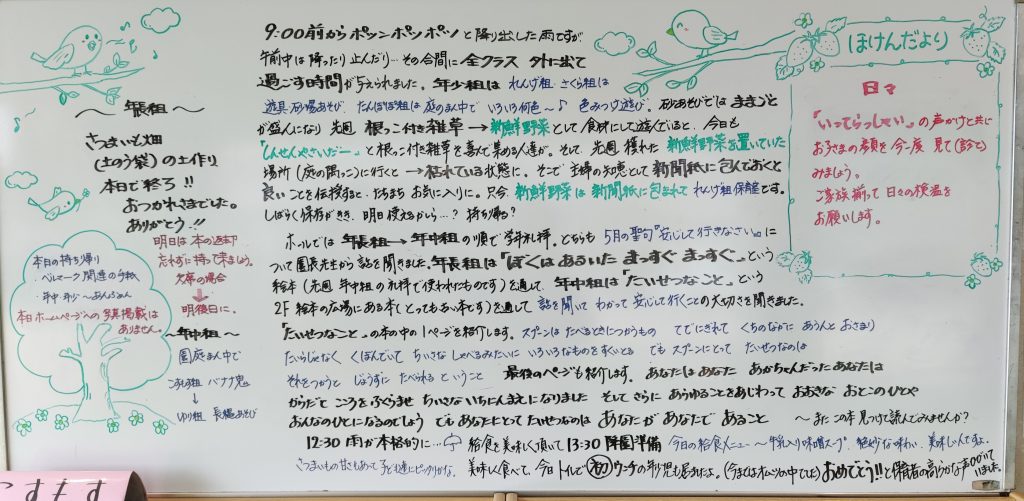 9:00前からポツンポツンポツンと降り出した雨ですが
午前中は降ったり止んだり…その合間に全クラス 外に出て
過ごす時間が与えられました。年少組は れんげ組・さくら組は
遊具・砂場あそび たんぽぽ組は庭のまん中で いろいろ何色〜♪ 色みつけ遊び。砂あそびでは ままごと
が盛んになり 先週 根っこ付き雑草→新鮮野菜として食材にして遊んでいると、今日も
「しんせんやさいだー」と根っこ付き雑草を喜んで集める人達が。そして 先週 穫れた 新鮮野菜を置いていた
場所(庭の隅っこ)に行くと→枯れている状態に。そこで 主婦の知恵として新聞紙に包んでおくと
良いことを伝授すると たちまち お気に入りに。只今、新鮮野菜は 新聞紙に包まれて れんげ組保管です。
しばらく保存がきき、明日使えるかしら…? 持ち帰る?
ホールでは 年長組→年中組の順で学年礼拝。どちらも 5月の聖句「安心して行きなさい。」に
ついて園長先生から話を聞きました。年長組は「ぼくはあるいた まっすぐ まっすぐ」という
絵本(先週 年中組の礼拝で使われたものです)を通して、年中組は「たいせつなこと」という
2F 絵本の広場にある本(とってもあつい本です)を通して 話を聞いて わかって 安心して行くことの大切さを聞きました。
「たいせつなこと」の本の中の1ページを紹介します。スプーンは たべるときにつかうもの てでにぎれて くちのなかに あうんと おさまり
たいらじゃなく くぼんでいて ちいさな しゃべるみたいに いろいろなものをすくいとる でも スプーンにとって たいせつなのは
それをつかうと じょうずに たべられる ということ 最後のページも紹介します。 あなたはあなた あかちゃんだったあなたは
からだと こころを ふくらませ ちいさないちにんまえになりました そして さらに あらゆることをあじわって おおきな おとこのひとや
おんなのひとになるのでしょう でも あなたにとって たいせつなのは あなたが あなたで あること 〜またこの本見つけて読んでみませんか?
12:30 雨が本格的に… 給食を美味しく頂いて 13:30 降園準備 今日の給食メニュー〜牛乳入り味噌スープ 絶妙な味わい、美味しいんですよ。
美味しく食べて、今日トイレで 初 ウンチの年少児も居ましたよ。(今まではオムツの中でした) おめでとう!!と保育者の高らかな声が響いていました。
〜 年長組 〜
さつまいも畑
(土のう袋)の土作り
本日で終了!!
おつかれさまでした。
ありがとう!!
本日の持ち帰り
ベルマーク関連の手紙
本日ホームページへの写真掲載は
ありません。
明日は 本の返却
忘れずに持って来ましょう。
欠席の場合
↓
明後日に。
〜年中組〜
園庭まん中で
バナナ鬼
↓
ゆり組 長縄あそび
ほけんだより
日々
「いってらっしゃい」の声かけと共に
お子さまの顔を今一度 見て(診て)
みましょう。
ご家族揃って 日々の検温を
お願いします。
こすもす